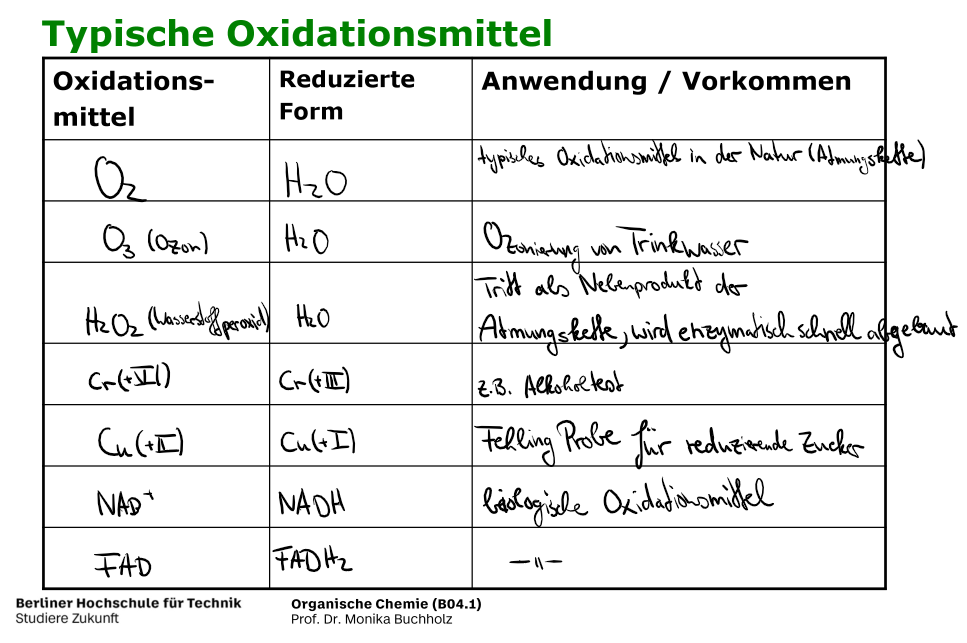 Typische Oxidationsmittel
Oxidations-
mittel
Reduzierte
Form
Anwendung / Vorkommen
O₂
H₂O
typisches Oxidationsmittel in der Natur (Atmungskette)
O₃ (Ozon)
H₂O
Ozonierung von Trinkwasser
H₂O₂ (Wasserstoffperoxid)
H₂O
Tritt als Nebenprodukt der
Atmungskette, wird enzymatisch schnell abgebaut
Cr(+VI)
Cr(+III)
z.B. Alkoholtest
Cu(+II)
Cu(+I)
Fehling Probe für reduzierende Zucker
NAD⁺
NADH
biologische Oxidationsmittel
FAD
FADH₂
—"—
Berliner Hochschule für Technik
Studiere Zukunft
Organische Chemie (B04.1)
Prof. Dr. Monika Buchholz